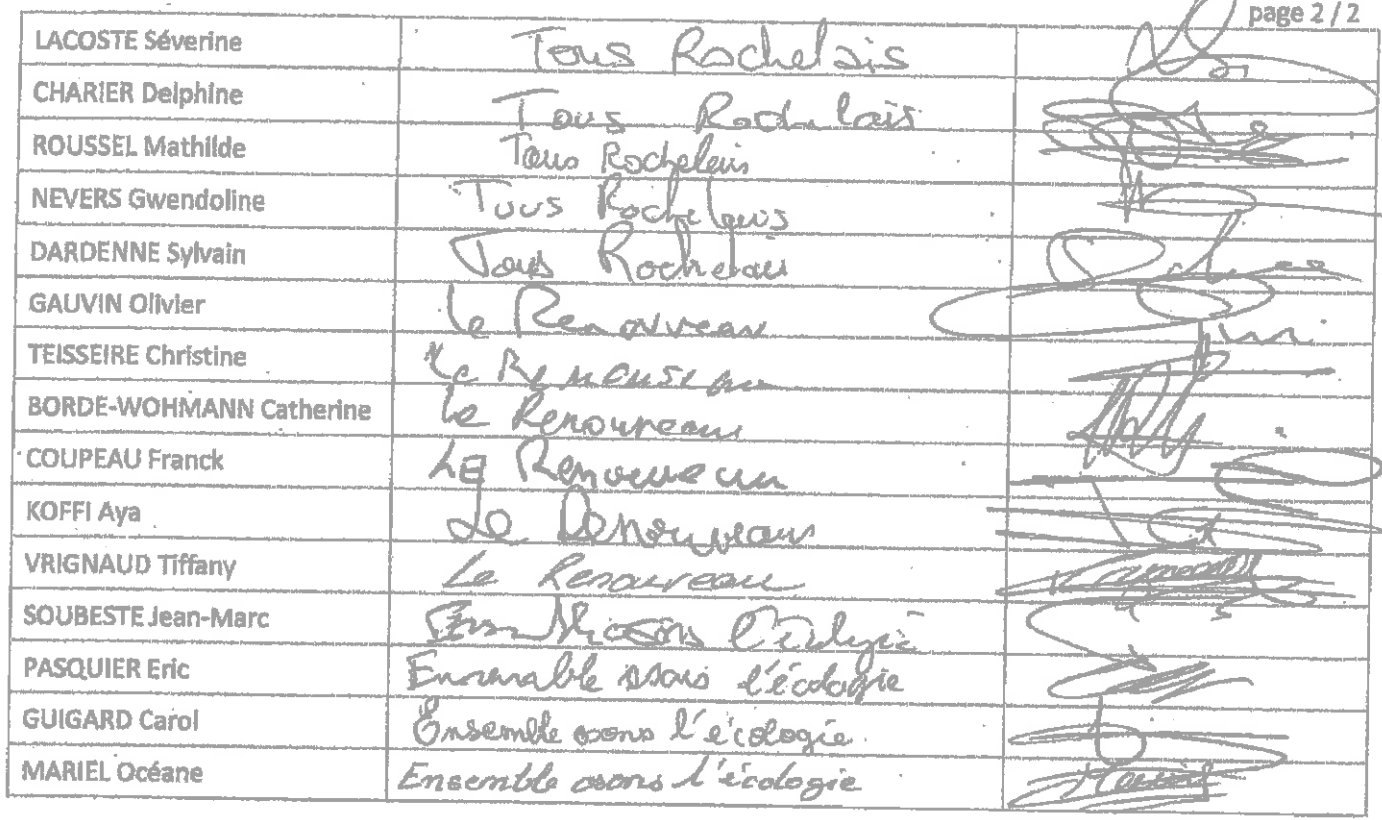 page 2 / 2
LACOSTE Séverine Tous Rochelais
CHARIER Delphine Tous Rochelais
ROUSSEL Mathilde Tous Rochelais
NEVERS Gwendoline Tous Rochelais
DARDENNE Sylvain Tous Rochelais
GAUVIN Olivier Le Renouveau
TEISSEIRE Christine Le Renouveau
BORDE-WOHMANN Catherine Le Renouveau
COUPEAU Franck LE Renouveau
KOFFI Aya Le Renouveau
VRIGNAUD Tiffany Le Renouveau
SOUBESTE Jean-Marc Ensemble osons l'écologie
PASQUIER Eric Ensemble osons l'écologie
GUIGARD Carol Ensemble osons l'écologie.
MARIEL Océane Ensemble osons l'écologie